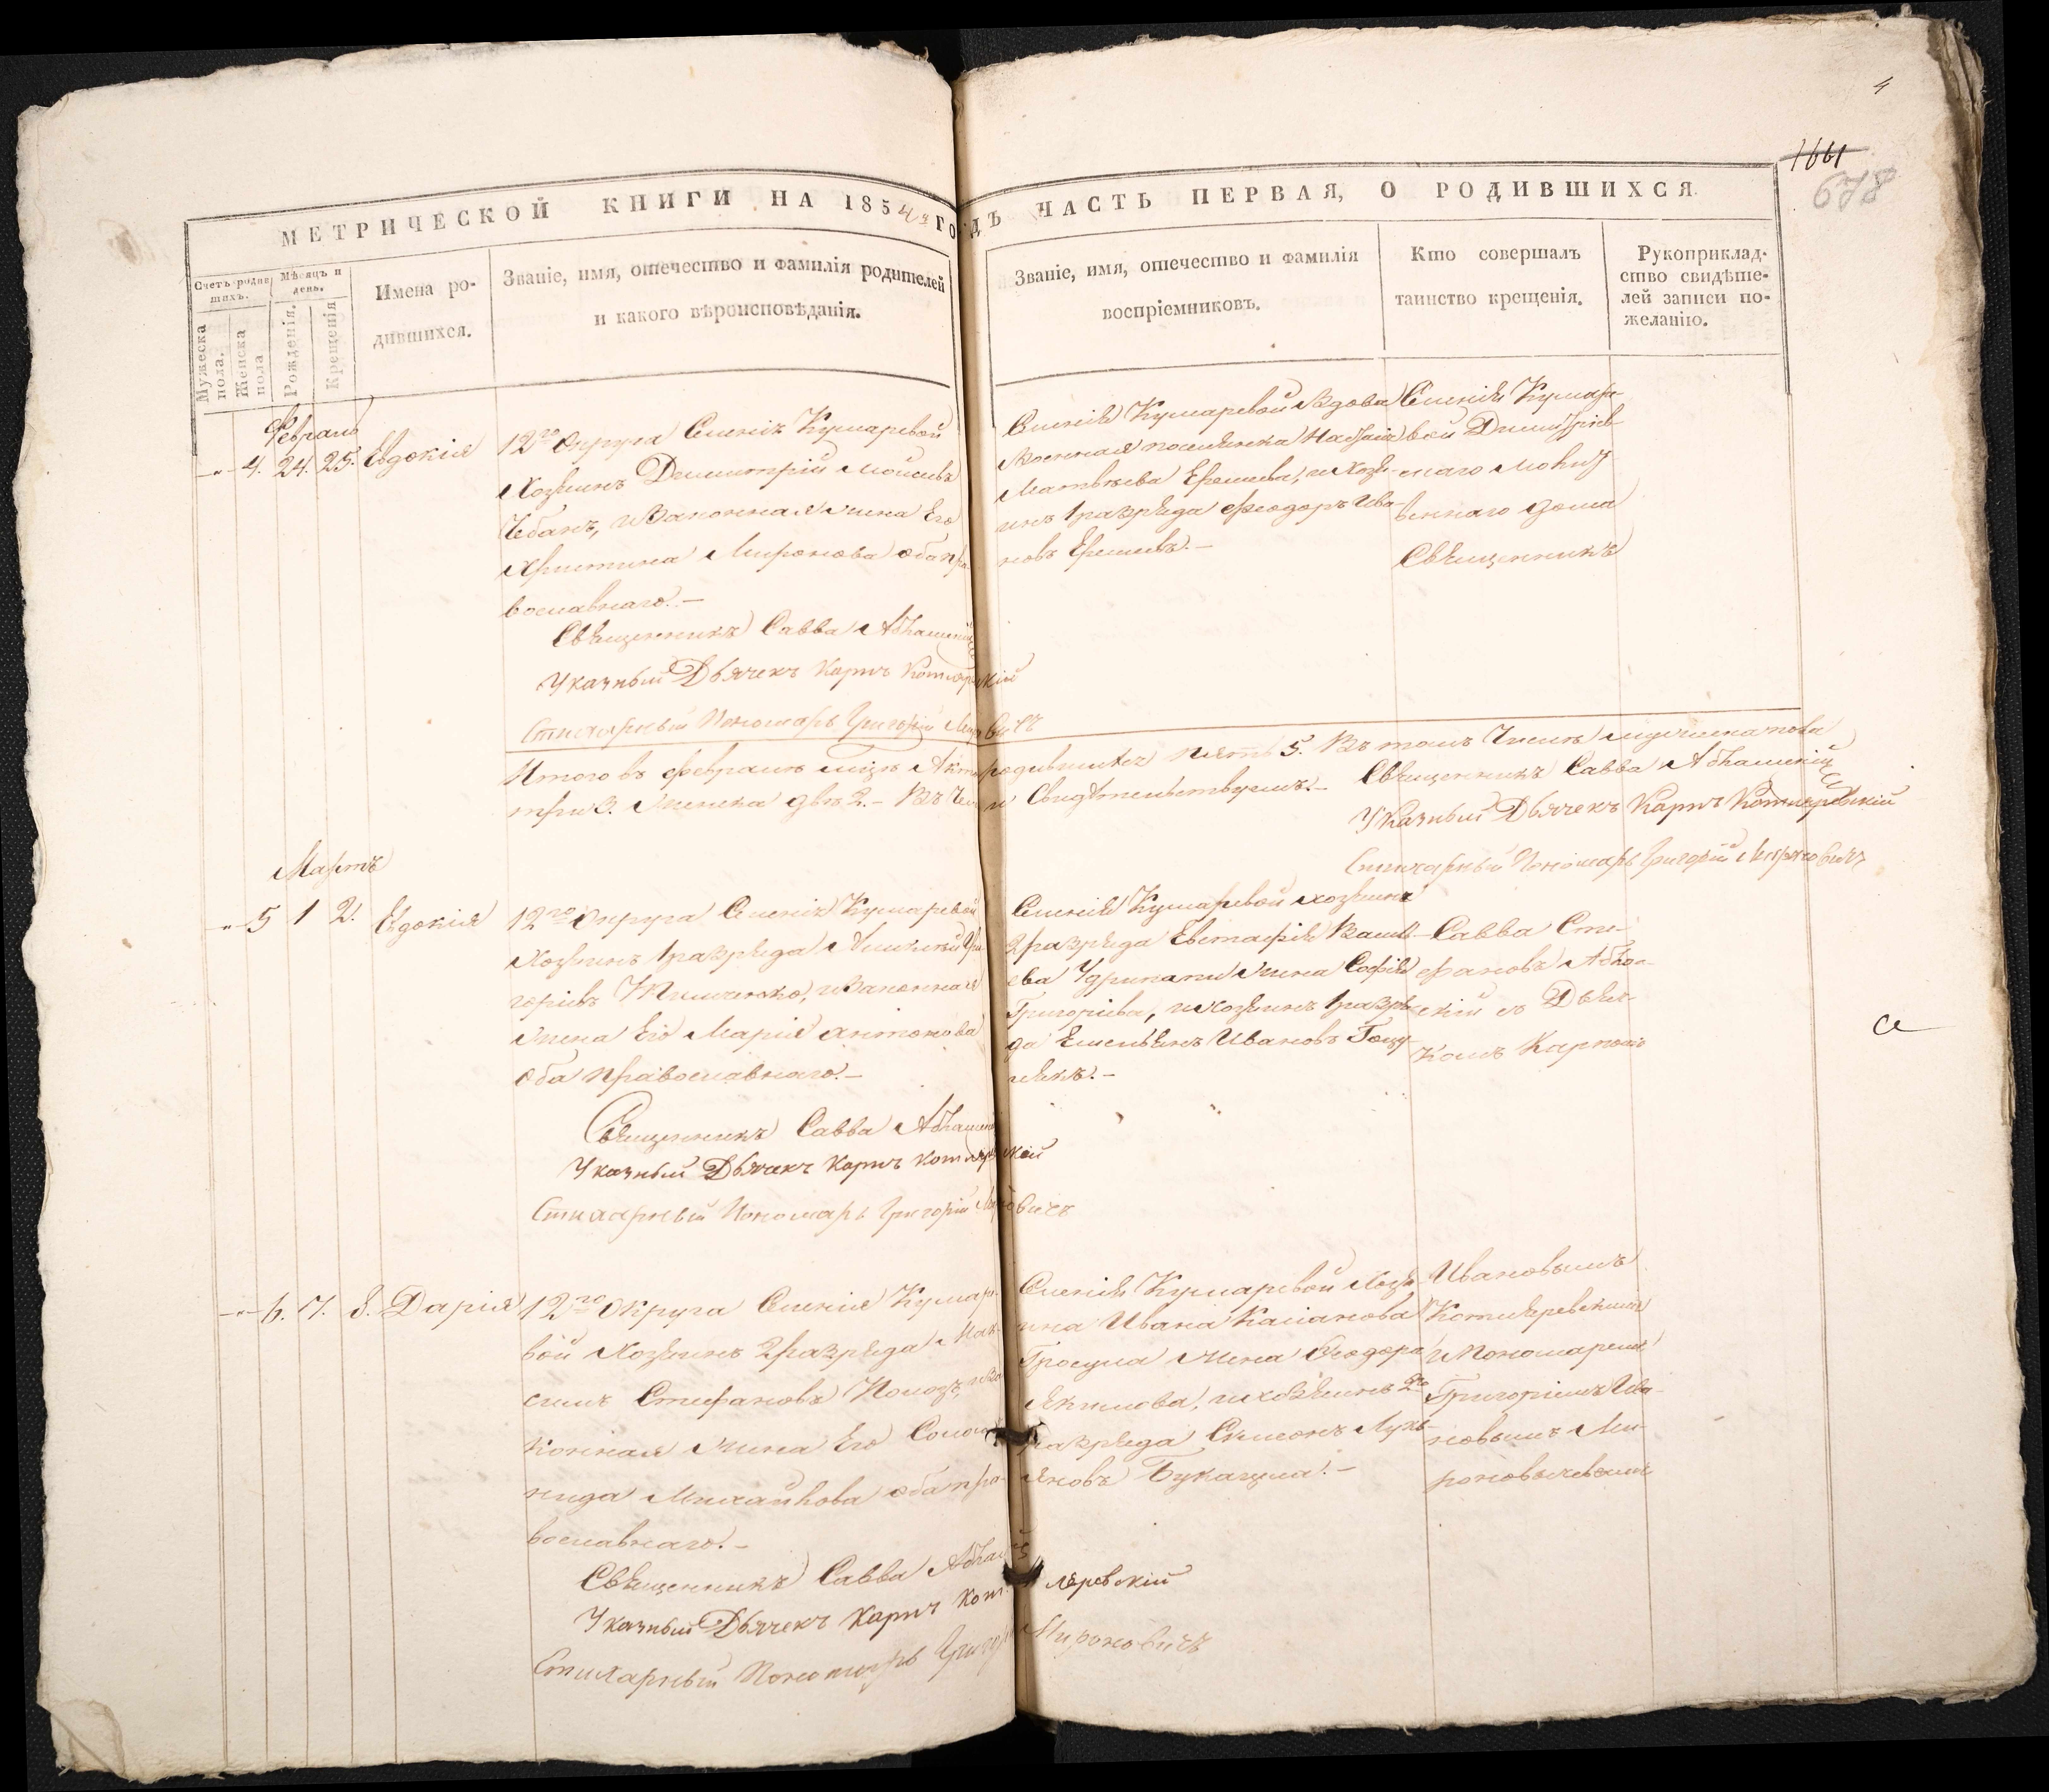 4
1661
678
МЕТРИЧЕСКОЙ КНИГИ НА 1854й ГОДЪ ЧАСТЬ ПЕРВАЯ, О РОДИВШИХСЯ.
Счетъ родившихъ.
Мужеска пола.
Женска пола
Мѣсяцъ и день.
Рожденія.
Крещенія
Имена родившихся.
Званіе, имя, отечество и фамилія родителей
и какого вѣроисповѣданія.
Званіе, имя, отечество и фамилія
воспріемниковъ.
Кто совершалъ
таинство крещенія.
Рукоприклад-
ство свидѣте-
лей записи по-
желанію.
Февраль
-"- 4. 24. 25. Евдокія
12го Округа Селенія Кумаревой
Хозяинъ Димитрій Моисеевъ
Чебанъ, и Законная жена Его
Христина Миронова оба пра-
вославнаго.-
Священникъ Савва
Указный Дьячекъ Карпъ Котляревскій
Стихарный Пономарь Григорій Мироновичъ
Селенія Кумаревой Вдова
Военная поселянка
Матвѣева Ерешева, и Хозя-
инъ 1 разряда Феодоръ Ива-
новъ Ерешевъ.-
Селенія Кумаре-
вой Димитріев-
скаго Молит-
веннаго дома
Священникъ
Итого въ Февралѣ родившихся пять 5. Въ томъ Числѣ мужеска пола
три 3. Женска двѣ 2.- Въ Чемъ и Свидѣтельствуемъ.-
Священникъ Савва
Указный Дьячекъ Карпъ Котляревскій
Стихарный Пономарь Григорій Мироновичъ
Мартъ
-"- 5 1 2. Евдокія
12го Округа Селенія Кумаревой
Хозяинъ 1 разряда Гри-
горіевъ и Законная
жена Его Марія Антонова
оба Православнаго.-
Священникъ Савва
Указный Дьячекъ Карпъ Котляревскій
Стихарный Пономарь Григорій Мироновичъ
Селенія Кумаревой хозяина
2 разряда Евстафія Васи-
ева жена Софія
Григоріева, и хозяинъ 1 разря-
да Емельянъ Ивановъ
Савва Сте-
фановъ
съ Дьяч-
комъ Карпомъ
-"- 6. 7. 8. Дарія
12го Округа Селенія Кумаре-
вой Хозяинъ 2 разряда Мак-
симъ Стефановъ и За-
конная жена Его Соломо-
нида Михайлова оба пра-
вославнаго.-
Священникъ Савва
Указный Дьячекъ Карпъ Котляревскій
Стихарный Пономарь Григорій Мироновичъ
Селенія Кумаревой Хозя-
ина Ивана Касіанова
жена Феодора
Якимова, и хозяинъ 2го
разряда Симеонъ Лукь-
яновъ
Ивановымъ
Котляревскимъ
и Пономаремъ
Григоріемъ Ива-
новымъ Ми-
роновичевымъ